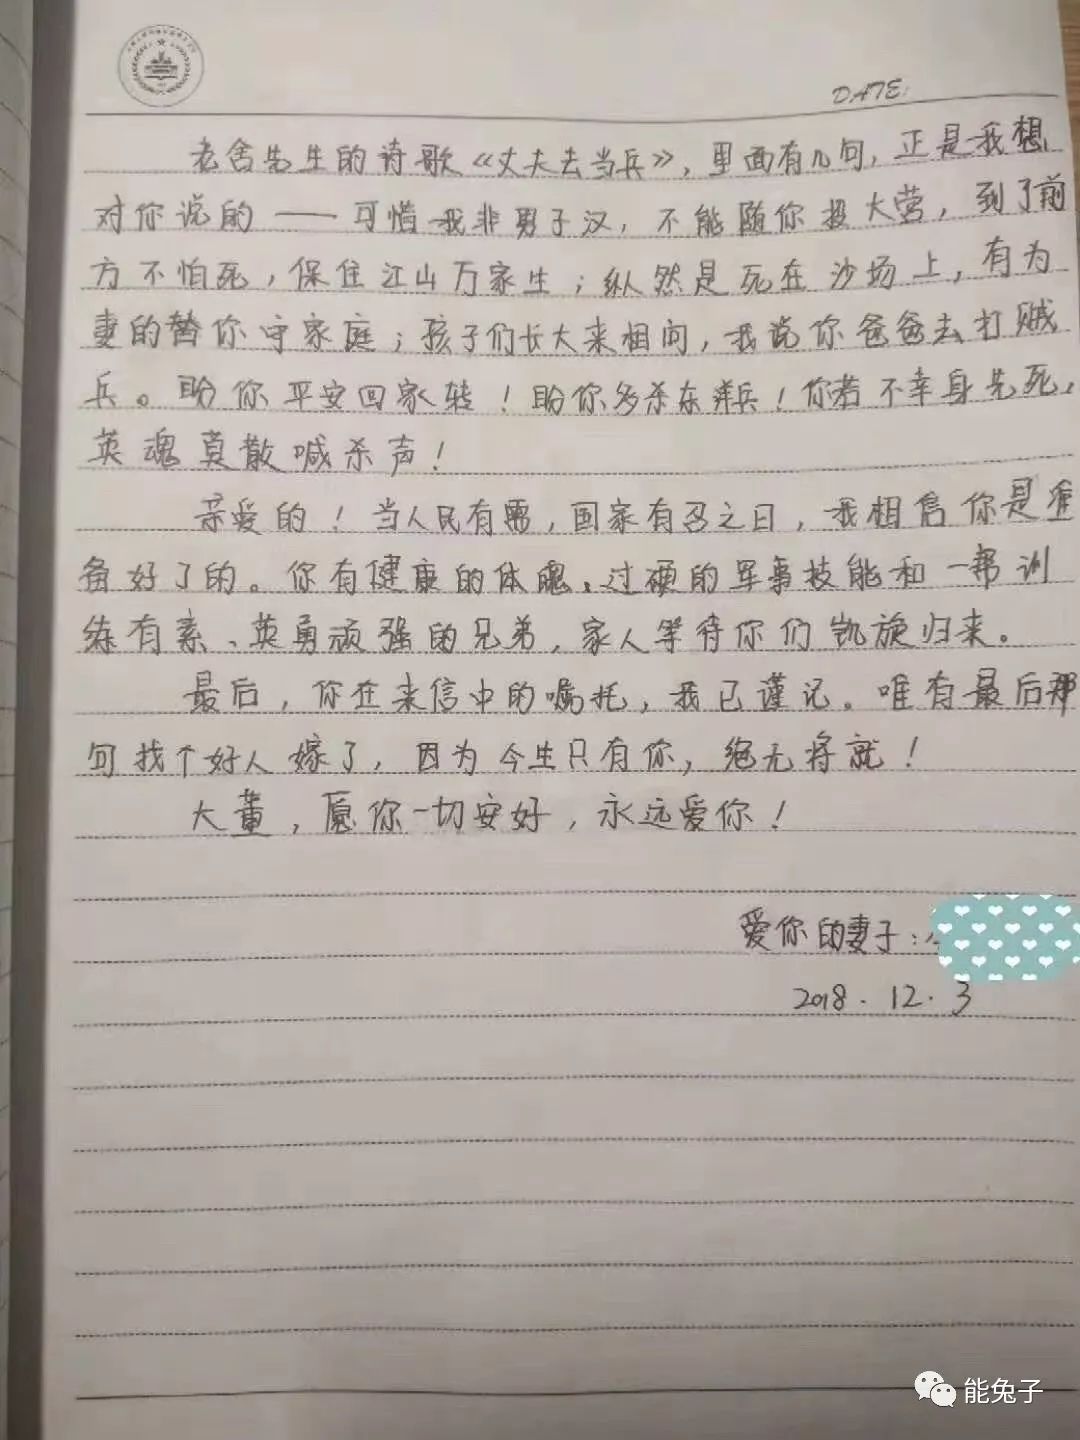 DATE:
老舍先生的诗歌《丈夫去当兵》，里面有几句，正是我想
对你说的——可惜我非男子汉，不能随你投大营，到了前
方不怕死，保住江山万家生；纵然是死在沙场上，有为
妻的替你守家庭；孩子们长大来相问，我说你爸爸去打贼
兵。盼你平安回家转！盼你多杀东洋兵！你若不幸身先死，
英魂莫散喊杀声！
亲爱的！当人民有需，国家有召之日，我相信你是准
备好了的。你有健康的体魄、过硬的军事技能和一帮训
练有素、英勇顽强的兄弟，家人等待你们凯旋归来。
最后，你在来信中的嘱托，我已谨记。唯有最后那
句找个好人嫁了，因为今生只有你，绝无将就！
大董，愿你一切安好，永远爱你！
爱你的妻子：
2018.12.3
能兔子